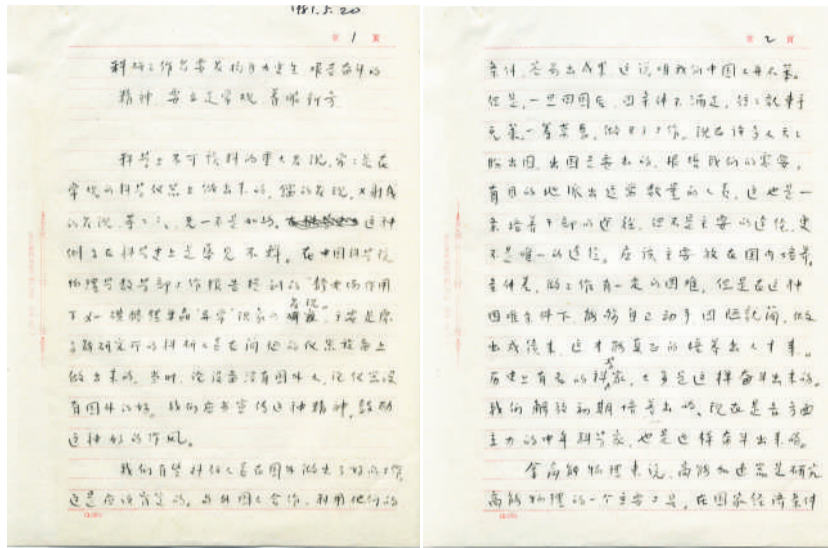 1981.5.20
第 1 页
科研工作者要发扬自力更生 艰苦奋斗的
精神 要立足常规 着眼新奇
科学上不可预料的重大发现，常常是在
常规的科学仪器上做出来的。镭的发现，X射线
的发现，等等，无一不是如此。这种
例子在科学史上是屡见不鲜。在中国科学院
物理学数学部工作报告提到的"静电场作用
下 碘酸锂单晶"异常"现象的发现"，主要是原
子能研究所的科研人员在简陋的仪器设备上
做出来的。当时，论设备没有国外大，论仪器没
有国外的好。我们应当宣传这种精神，鼓励
这种好的作风。
我们有些科研人员在国外做出了好的工作
这是应该肯定的。与外国人合作，利用他们的
第 2 页
条件，容易出成果，这说明我们中国人并不笨。
但是，一旦回国后，因条件不满足，往往就束手
无策，一筹莫展，做不了工作。现在许多人天天
盼出国。出国是要出的，根据我们的需要，
有目的地派出适当数量的人员，这也是一
条培养干部的途径，但不是主要的途径，更
不是唯一的途径。应该主要放在国内培养。
条件差，做工作有一定的困难，但是在这种
困难条件下，能够自己动手，因陋就简，做
出成绩来，这才能真正的培养出人才来。
历史上有名的科学家，大多是这样奋斗出来的。
我们解放初期培养出的、现在是各方面
主力的中年科学家，也是这样奋斗出来的。
拿高能物理来说，高能加速器是研究
高能物理的一个主要工具。在国家经济条件